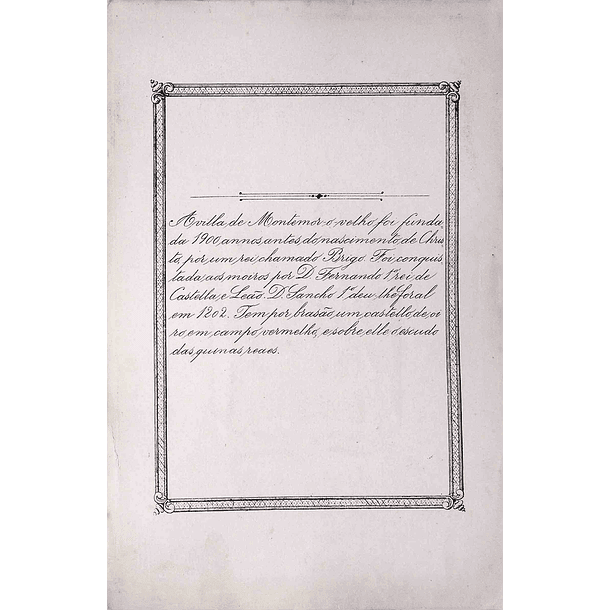 A villa, de Montemor-o velho, foi funda
da 1900, annos, antes, do, nascimento, de Chris
to, por, um, rei, chamado Brigo. Foi, conquis
tada, aos, moiros por D. Fernando 1º rei, de
Castella, e Leão. D. Sancho 1º, deu, lhe foral
em 1202. Tem, por, brasão, um, castello, de, oi
ro, em, campo, vermelho, e, sobre, elle o escudo
das, quinas, reaes.